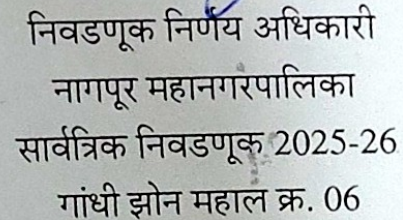 निवडणूक निर्णय अधिकारी
नागपूर महानगरपालिका
सार्वत्रिक निवडणूक 2025-26
गांधी झोन महाल क्र. 06